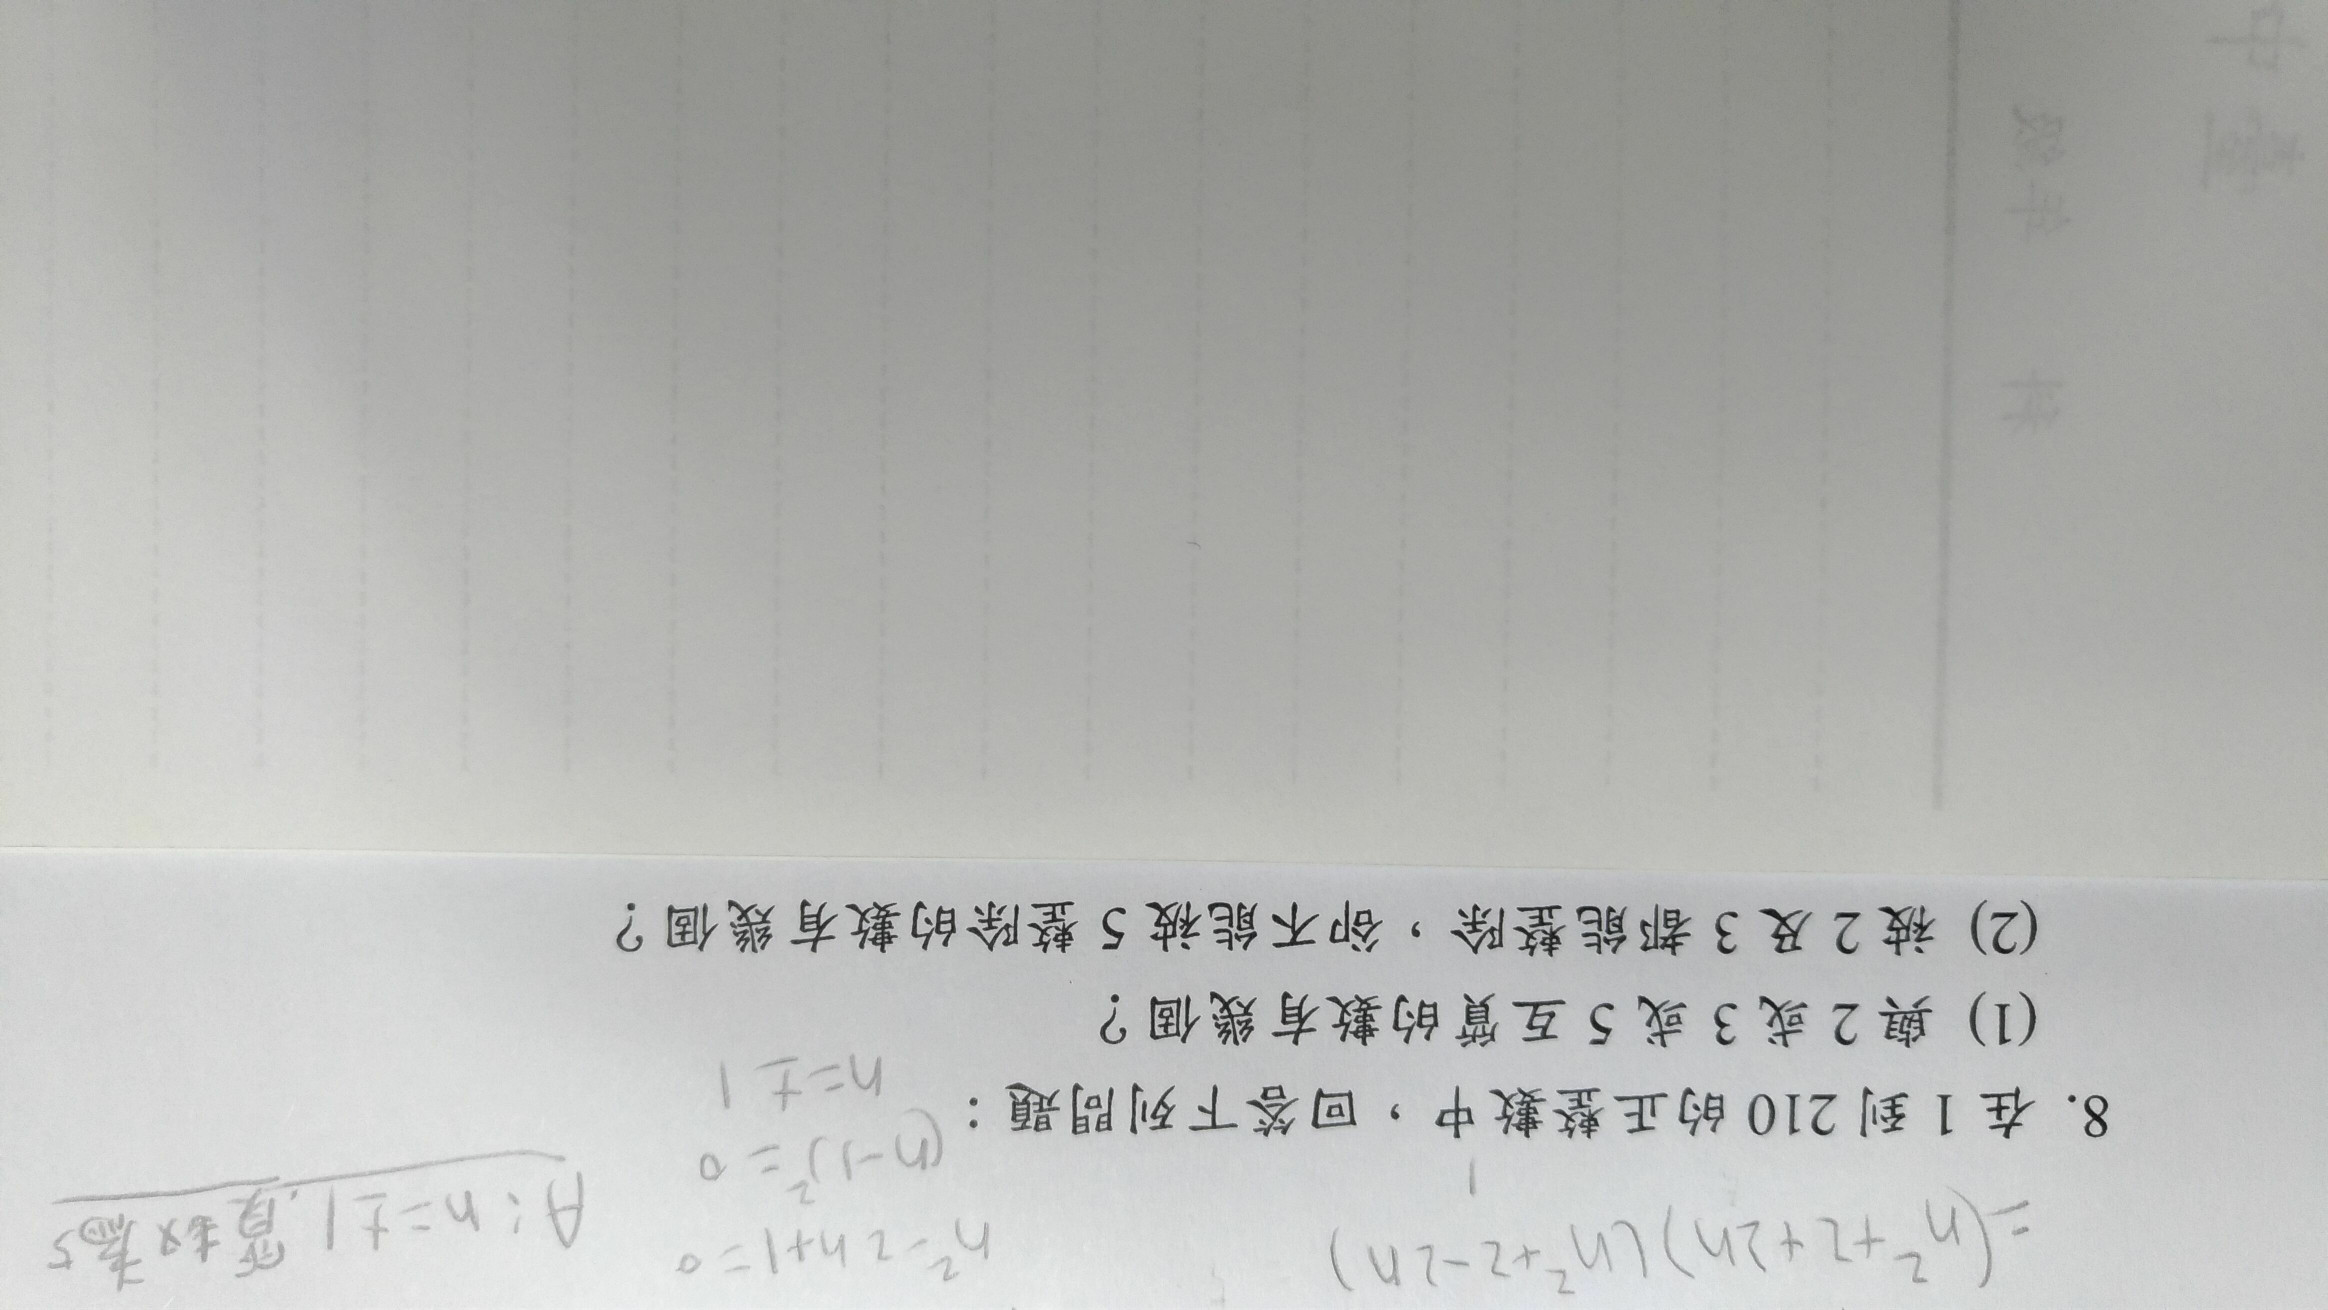 =(n²+2+2n)(n²+2-2n)
1
n²-2n+1=0
(n-1)²=0
n=±1
A:n=±1,質數為5
8. 在 1 到 210 的正整數中，回答下列問題：
(1) 與 2 或 3 或 5 互質的數有幾個？
(2) 被 2 及 3 都能整除，卻不能被 5 整除的數有幾個？